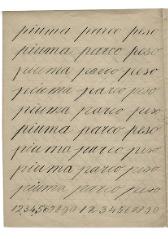 piuma parco peso
piuma parco peso
piuma parco peso
piuma parco peso
piuma parco peso
piuma parco peso
piuma parco peso
piuma parco peso
piuma parco peso
1234567890 1234567890